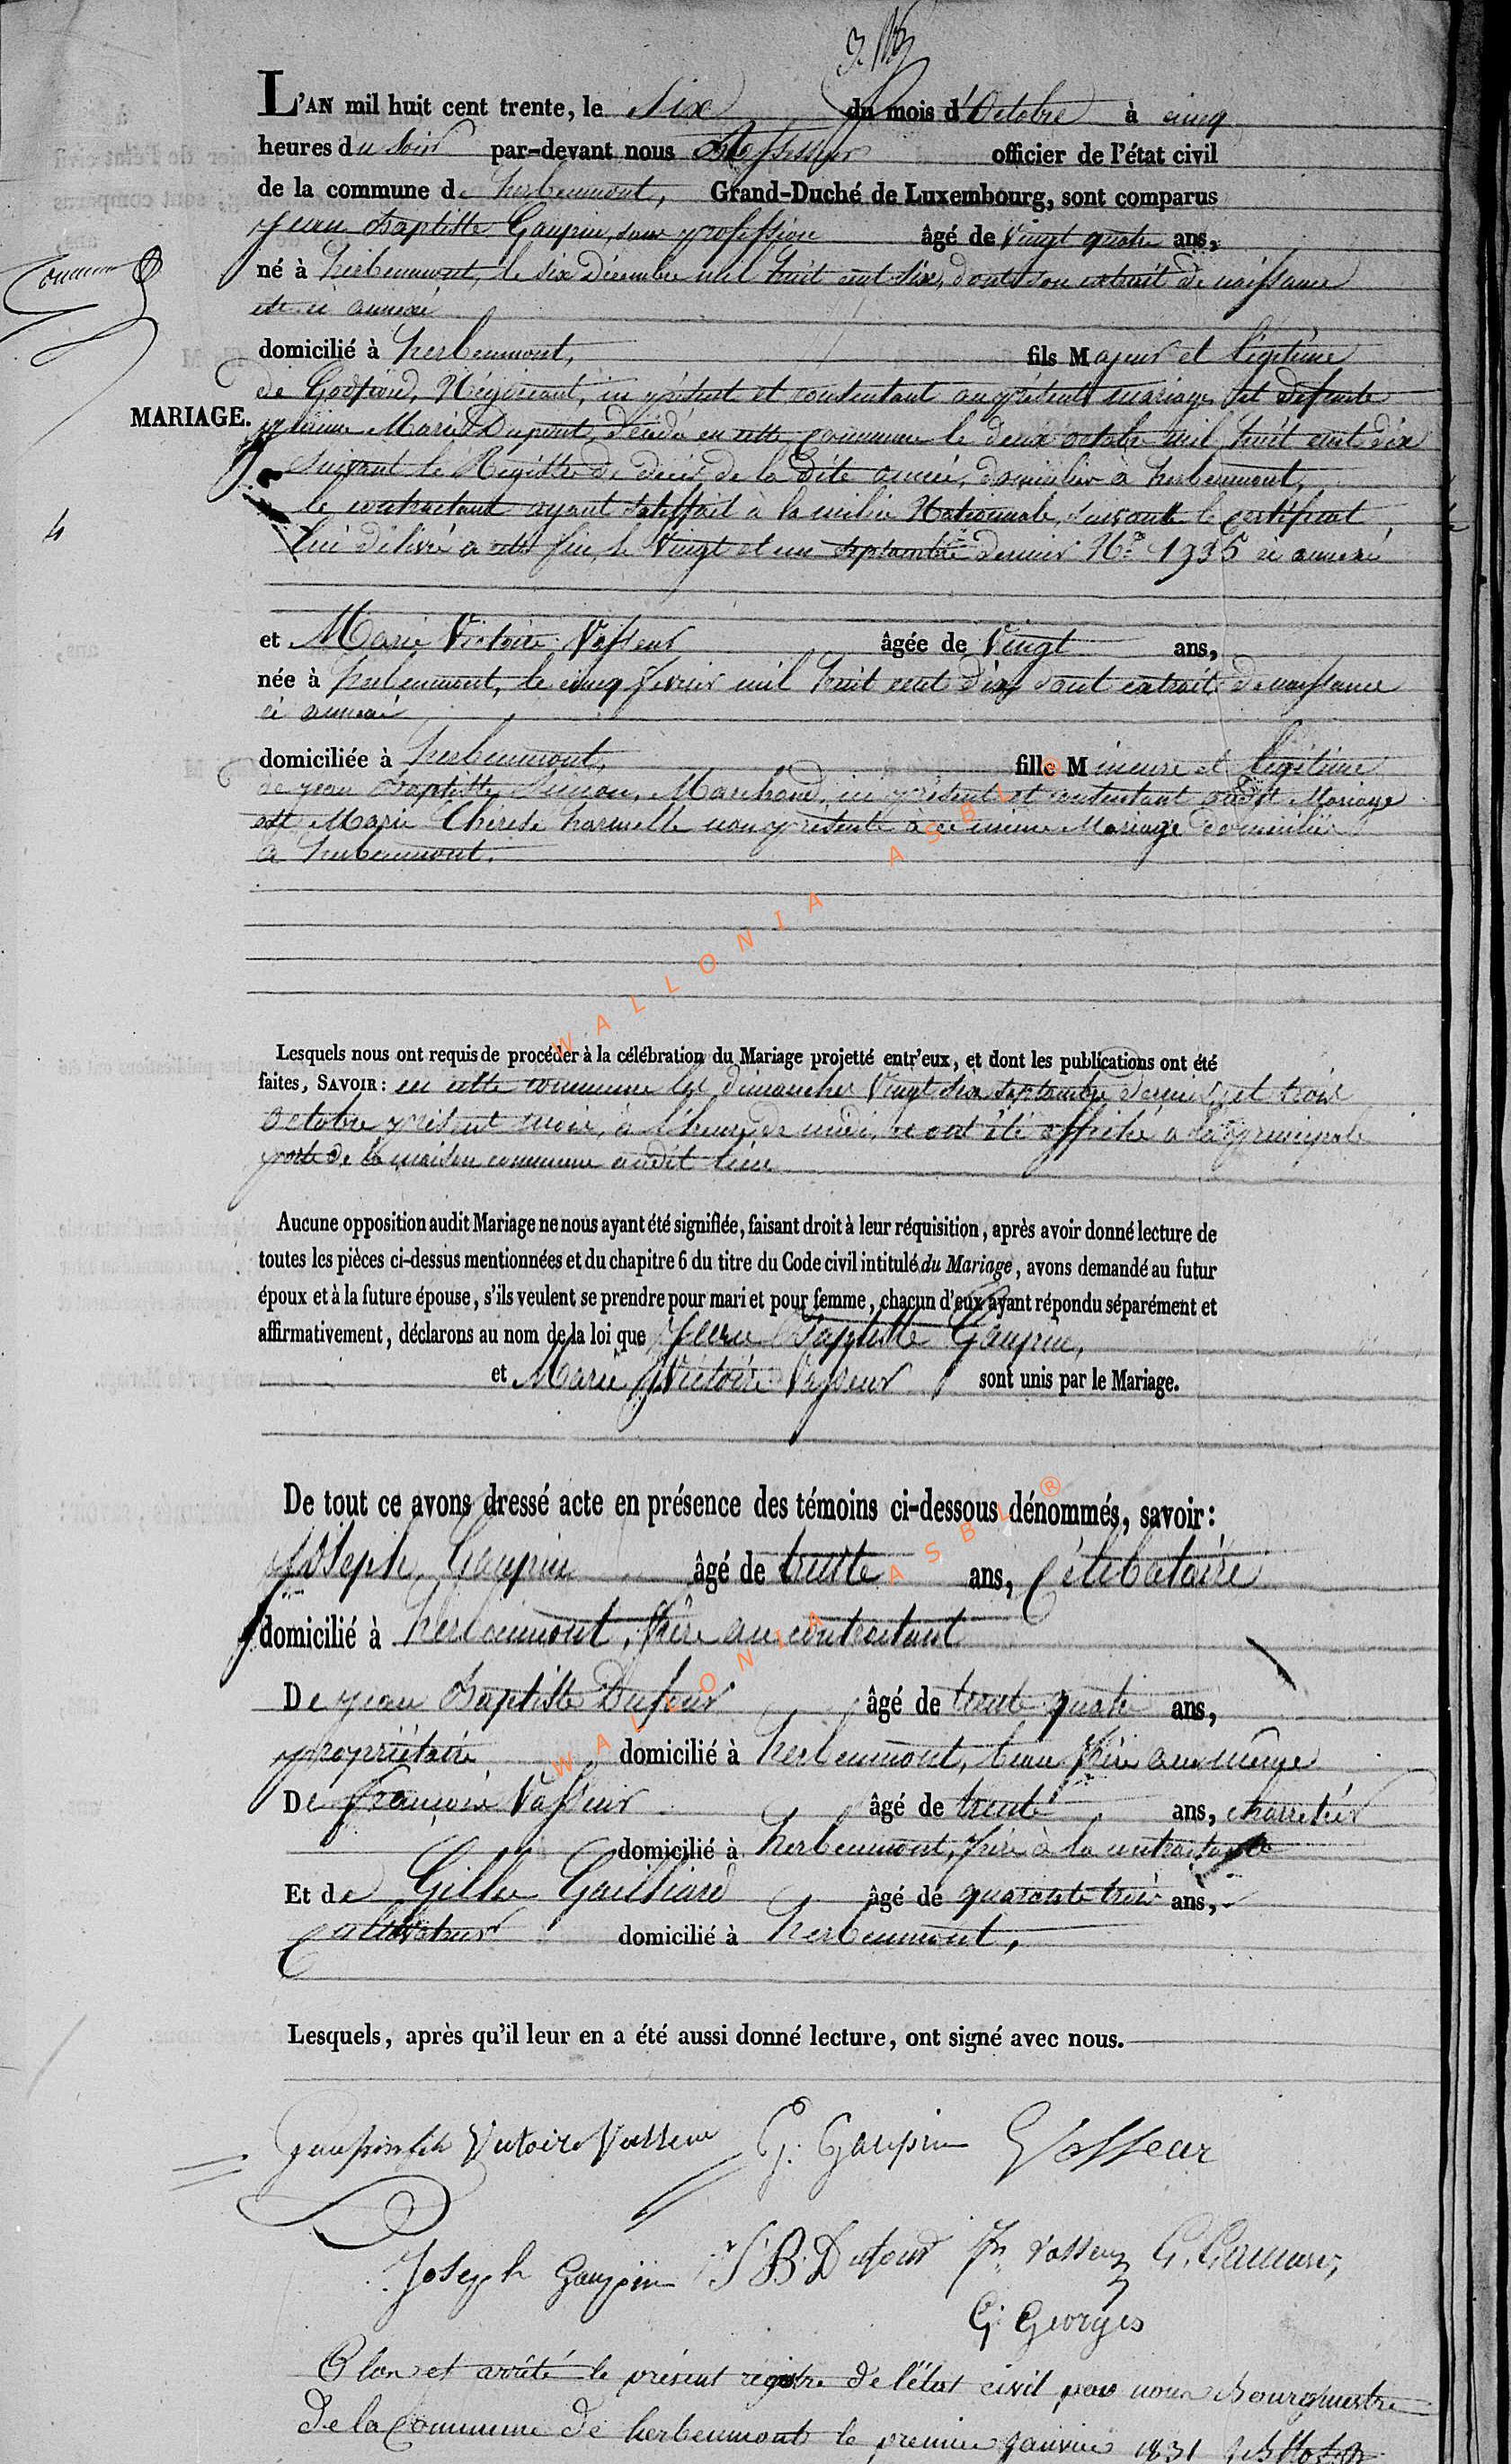 L'AN mil huit cent trente, le Six du mois d'Octobre à cinq
heures du Soir par-devant nous officier de l'état civil
de la commune de herbeumont, Grand-Duché de Luxembourg, sont comparus
jean Baptiste Gaupin, sans profession âgé de Vingt quatre ans,
né à herbeumont, le six Décembre mil huit cent Six, dont son extrait de naissance
est ci annexé
domicilié à herbeumont, fils Majeur et légitime
de Godfroid, Négociant, ici présent et consentant au présent mariage, et defunte
MARIAGE.
Marie Dupont, décédé en cette commune le deux octobre mil huit cent dix
suivant le Régistre de décès de la dite année, domicilier à herbeumont,
le contractant ayant satisfait à la milice Nationnale, suivant le certificat
4
lui délivré a cette fin, le Vingt et un septembre dernier N° 1935 ci annexé
et Marie Victoire Vasseur âgée de Vingt ans,
née à herbeumont, le cinq fevrier mil huit cent dix dont extrait de naissance
ci annexé
domiciliée à herbeumont, fille Mineure et légitime
de jean Baptiste Marchand, ici présent et consentant audit Mariage
et Marie Thérèse non présente à ce même Mariage domicilier
à herbeumont.
Lesquels nous ont requis de procéder à la célébration du Mariage projetté entr'eux, et dont les publications ont été
faites, SAVOIR: en cette commune les dimanches Vingt six septembre dernier, et trois
Octobre présent mois, à l'heure de midi, et ont été affiché a la principale
porte de la maison commune audit lieu
Aucune opposition audit Mariage ne nous ayant été signifiée, faisant droit à leur réquisition, après avoir donné lecture de
toutes les pièces ci-dessus mentionnées et du chapitre 6 du titre du Code civil intitulé du Mariage, avons demandé au futur
époux et à la future épouse, s'ils veulent se prendre pour mari et pour femme, chacun d'eux ayant répondu séparément et
affirmativement, déclarons au nom de la loi que Jean Baptiste Gaupin,
et Marie Victoire Vasseur sont unis par le Mariage.
De tout ce avons dressé acte en présence des témoins ci-dessous dénommés, savoir:
Joseph Gaupin âgé de trente ans, Célibataire
domicilié à herbeumont, frère au contractant
De jean Baptiste Dufour âgé de trente quatre ans,
propriétaire domicilié à herbeumont, beau frère au même
De françois Vasseur âgé de trente ans, charretier
domicilié à herbeumont, frère à la contractante
Et de Gille Gailliard âgé de quarante trois ans,
Cultivateur domicilié à herbeumont,
Lesquels, après qu'il leur en a été aussi donné lecture, ont signé avec nous.
Gaupin fils Victoire Vasseur G. Gaupin Vasseur
Joseph Gaupin J B Dufour fr vasseur
G. Georges
Clos et arrêté le présent registre de l'état civil par nous Bourgmestre
De la Commune de herbeumont le premier janvier 1831
WALLONIA ASBL ®
WALLONIA ASBL ®